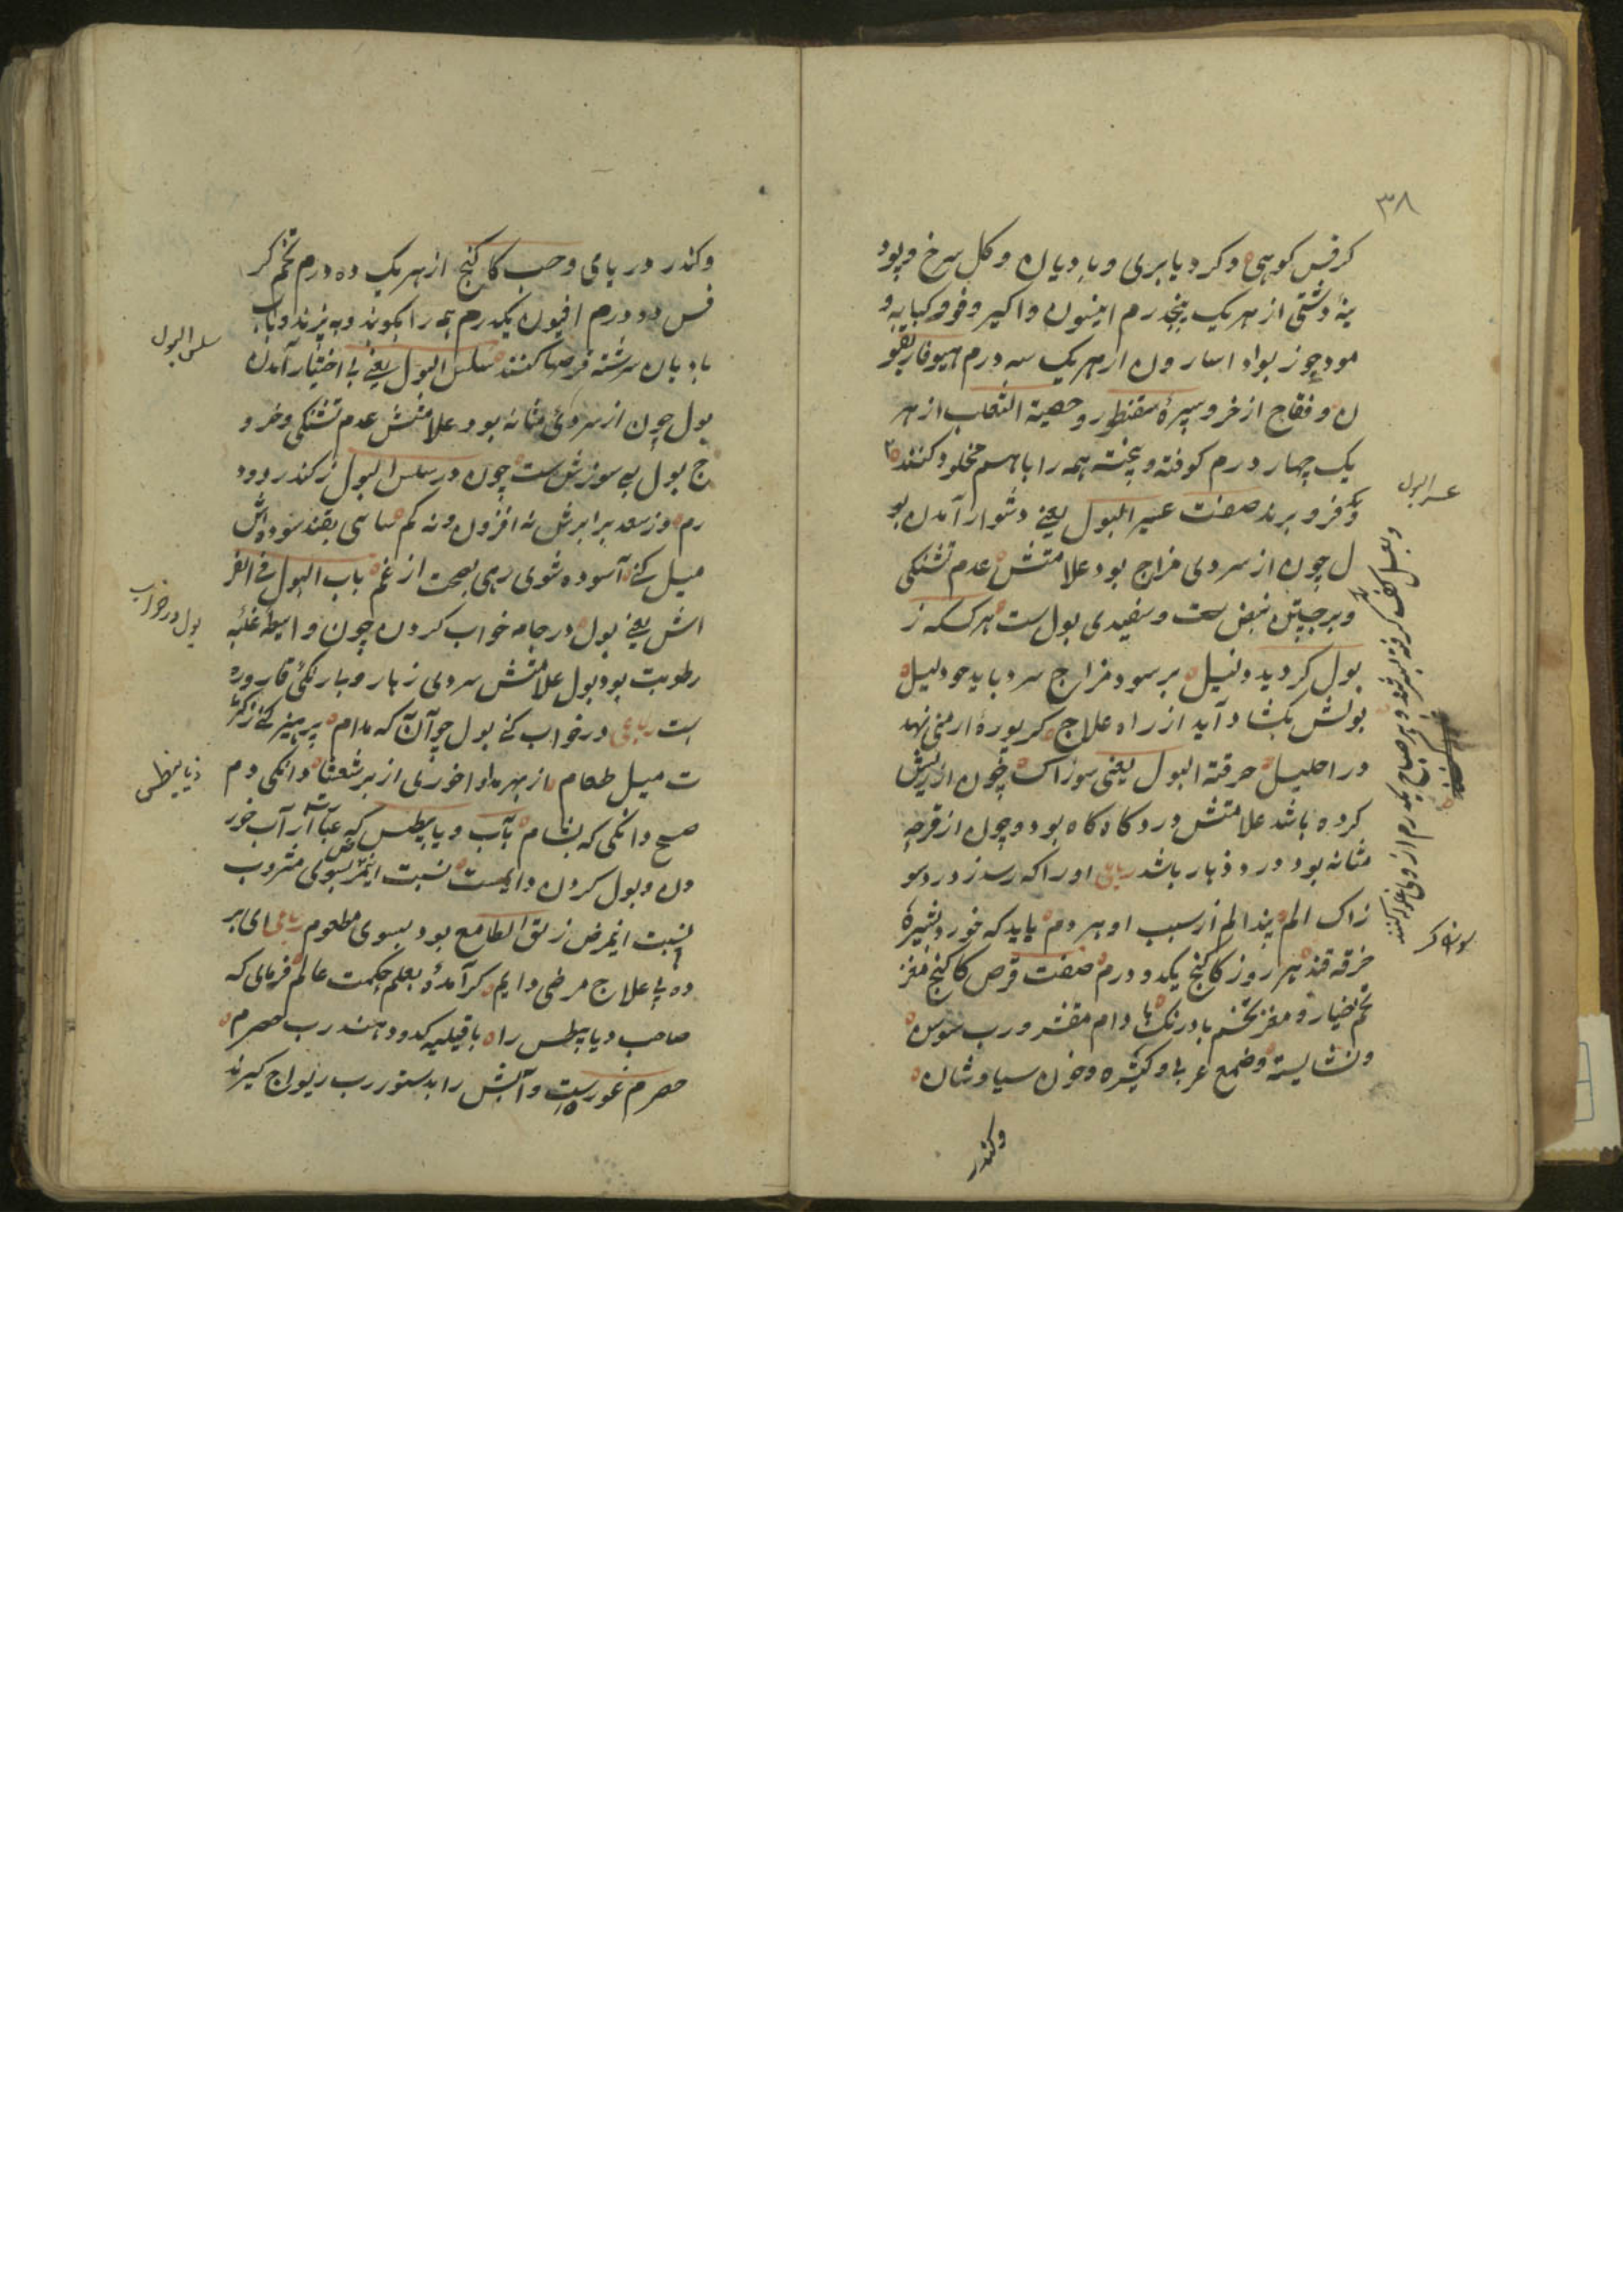 ۳۸
کرفس کوهی و کرویا بری و بادیان و کل سرخ و پود
ینۀ دشتی از هریک پنجدرم انیسون و اکیر و فوه کبابه و
مود جوز بوا و اسارون از هریک سه درم هیوفاریقو
ن و فقاح اذخر و سیرۀ سقنقور و خصیة الثعلب از هر
یک چهار درم کوفته و پخته همه را باهم مخلود کنند
فرو برند صفت عسر البول یعنی دشوار آمدن بو
ل چون از سردی مزاج بود علامتش عدم تشنکی
و برجستن نبض ست و سفیدی بول ست هر کسکه ز
بول کردید دلیل بر سود مزاج سرد باید جو دلیل
بولش بکشاد آید از راه علاج کر بورۀ ارمنی نهد
در احلیل حرقة البول یعنی سوزاک چون از ریش
کرده باشد علامتش درد کاه کاه بود و چون از قرحه
مثانه بود درد ذبار باشد رباعی او را که رسد ز درد سو
زاک الم بیند الم از سبب او هر دم باید که خورد بشیرۀ
خرقه قند هر روز کاکنج یکدو درم صفت قرص کاکنج مغز
تخم خیار و مغز تخم بادرنک بادام مقشر و رب سوس
و نشایسته و ضمغ عربی و کتیره و خون سیاوشان
وکندر
عسر البول
سوزاک
وکندر دریای و حب کاکنج از هریک ده درم تخم کر
فس دو درم افیون یکدرم همه را بکوبند و به پزند و باب
بادیان سرشته قرصها کنند سلس البول یعنی بی اختیار آمدن
بول چون از سردی مثانه بود علامتش عدم تشنکی و خرو
ج بول بی سوزش ست چون در سلس البول ز کندر دود
رم وز سعد برابرش نه افزون و نه کم سا سی بقند سوده اش
میل کنی آسوده شوی رسی بصحت از غم باب البول فی الفر
اش یعنی بول در جامه خواب کردن چون واسطۀ غلبه
رطوبت بود بول علامتش سردی زهار و بی رنکی قاروره
ست رباعی در خواب کنی بول جو آن که مدام پرهیز کنی ز کثر
ت میل طعام از بهر دوا خوری از برشعثا دانکی دم
صبح دانکی که بشام بآب دیابیطس که عبارت از آب خور
دن و بول کردن دایمست نسبت اینمرض بسوی مشروب
نسبت اینمرض زلق الطامع بود بسوی مطعوم رباعی ای بر
ده پی علاج مرضی دایم کر آمدۀ بعلم حکمت عالم فرمای که
صاحب دیابیطس را با قیلیه کدو دهند رب حصرم
حصرم غوره ست و آبش را بدستور رب ریواج کیرند
سلس البول
بول در خواب
ذیابیطس